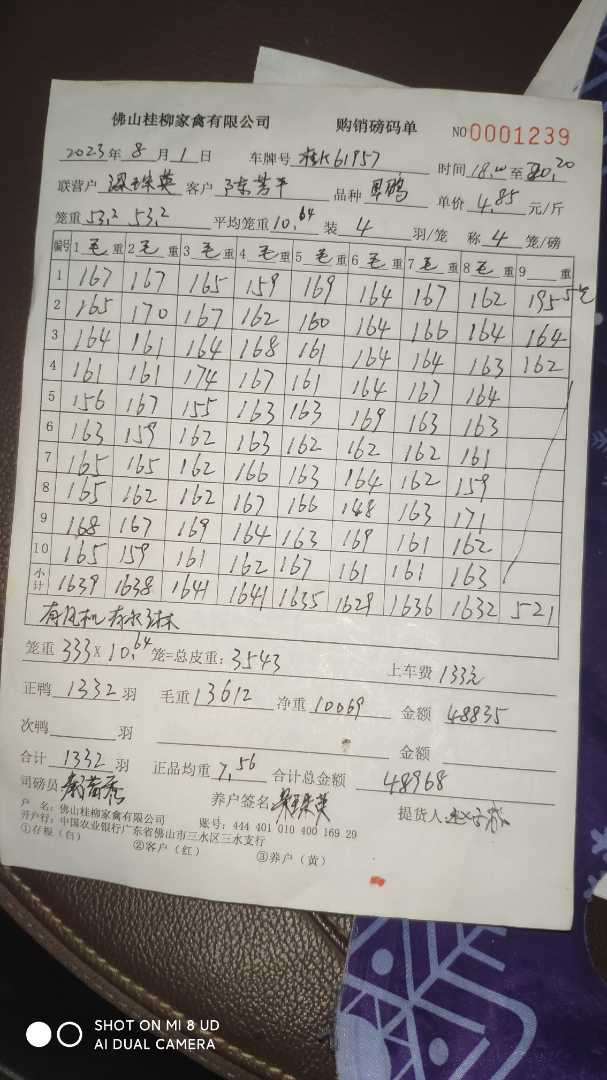 佛山桂柳家禽有限公司 购销磅码单 NO 0001239
2023年 8月 1日 车牌号 桂K61957 时间 18.00至20.20
联营户 客户 陈芳平 品种 单价 4.85 元/斤
笼重 53.2 53.2 平均笼重 10.64 装 4 羽/笼 称 4 笼/磅
编号 1 毛重 2 毛重 3 毛重 4 毛重 5 毛重 6 毛重 7 毛重 8 毛重 9 重
1 167 167 165 159 169 164 167 162 195 5笼
2 165 170 167 162 160 164 166 164 164
3 164 161 164 168 161 164 164 163 162
4 161 161 174 167 161 164 167 164
5 156 167 155 163 163 169 163 163
6 163 159 162 163 162 162 162 161
7 165 165 162 166 163 164 162 159
8 165 162 162 167 166 148 163 171
9 168 167 169 164 163 169 161 162
10 165 159 161 162 167 161 161 163
小计 1639 1638 1641 1641 1635 1629 1636 1632 521
有风机
笼重 333 × 10.64 笼=总皮重: 3543 上车费 133元
正鸭 1332 羽 毛重 13612 净重 10069 金额 48835
次鸭 羽 金额
合计 1332 羽 正品均重 7.56 合计总金额 48968
司磅员 养户签名 提货人
户 名: 佛山桂柳家禽有限公司 账号: 444 401 010 400 169 29
开户行: 中国农业银行广东省佛山市三水区三水支行
①存根(白) ②客户(红) ③养户(黄)
SHOT ON MI 8 UD
AI DUAL CAMERA